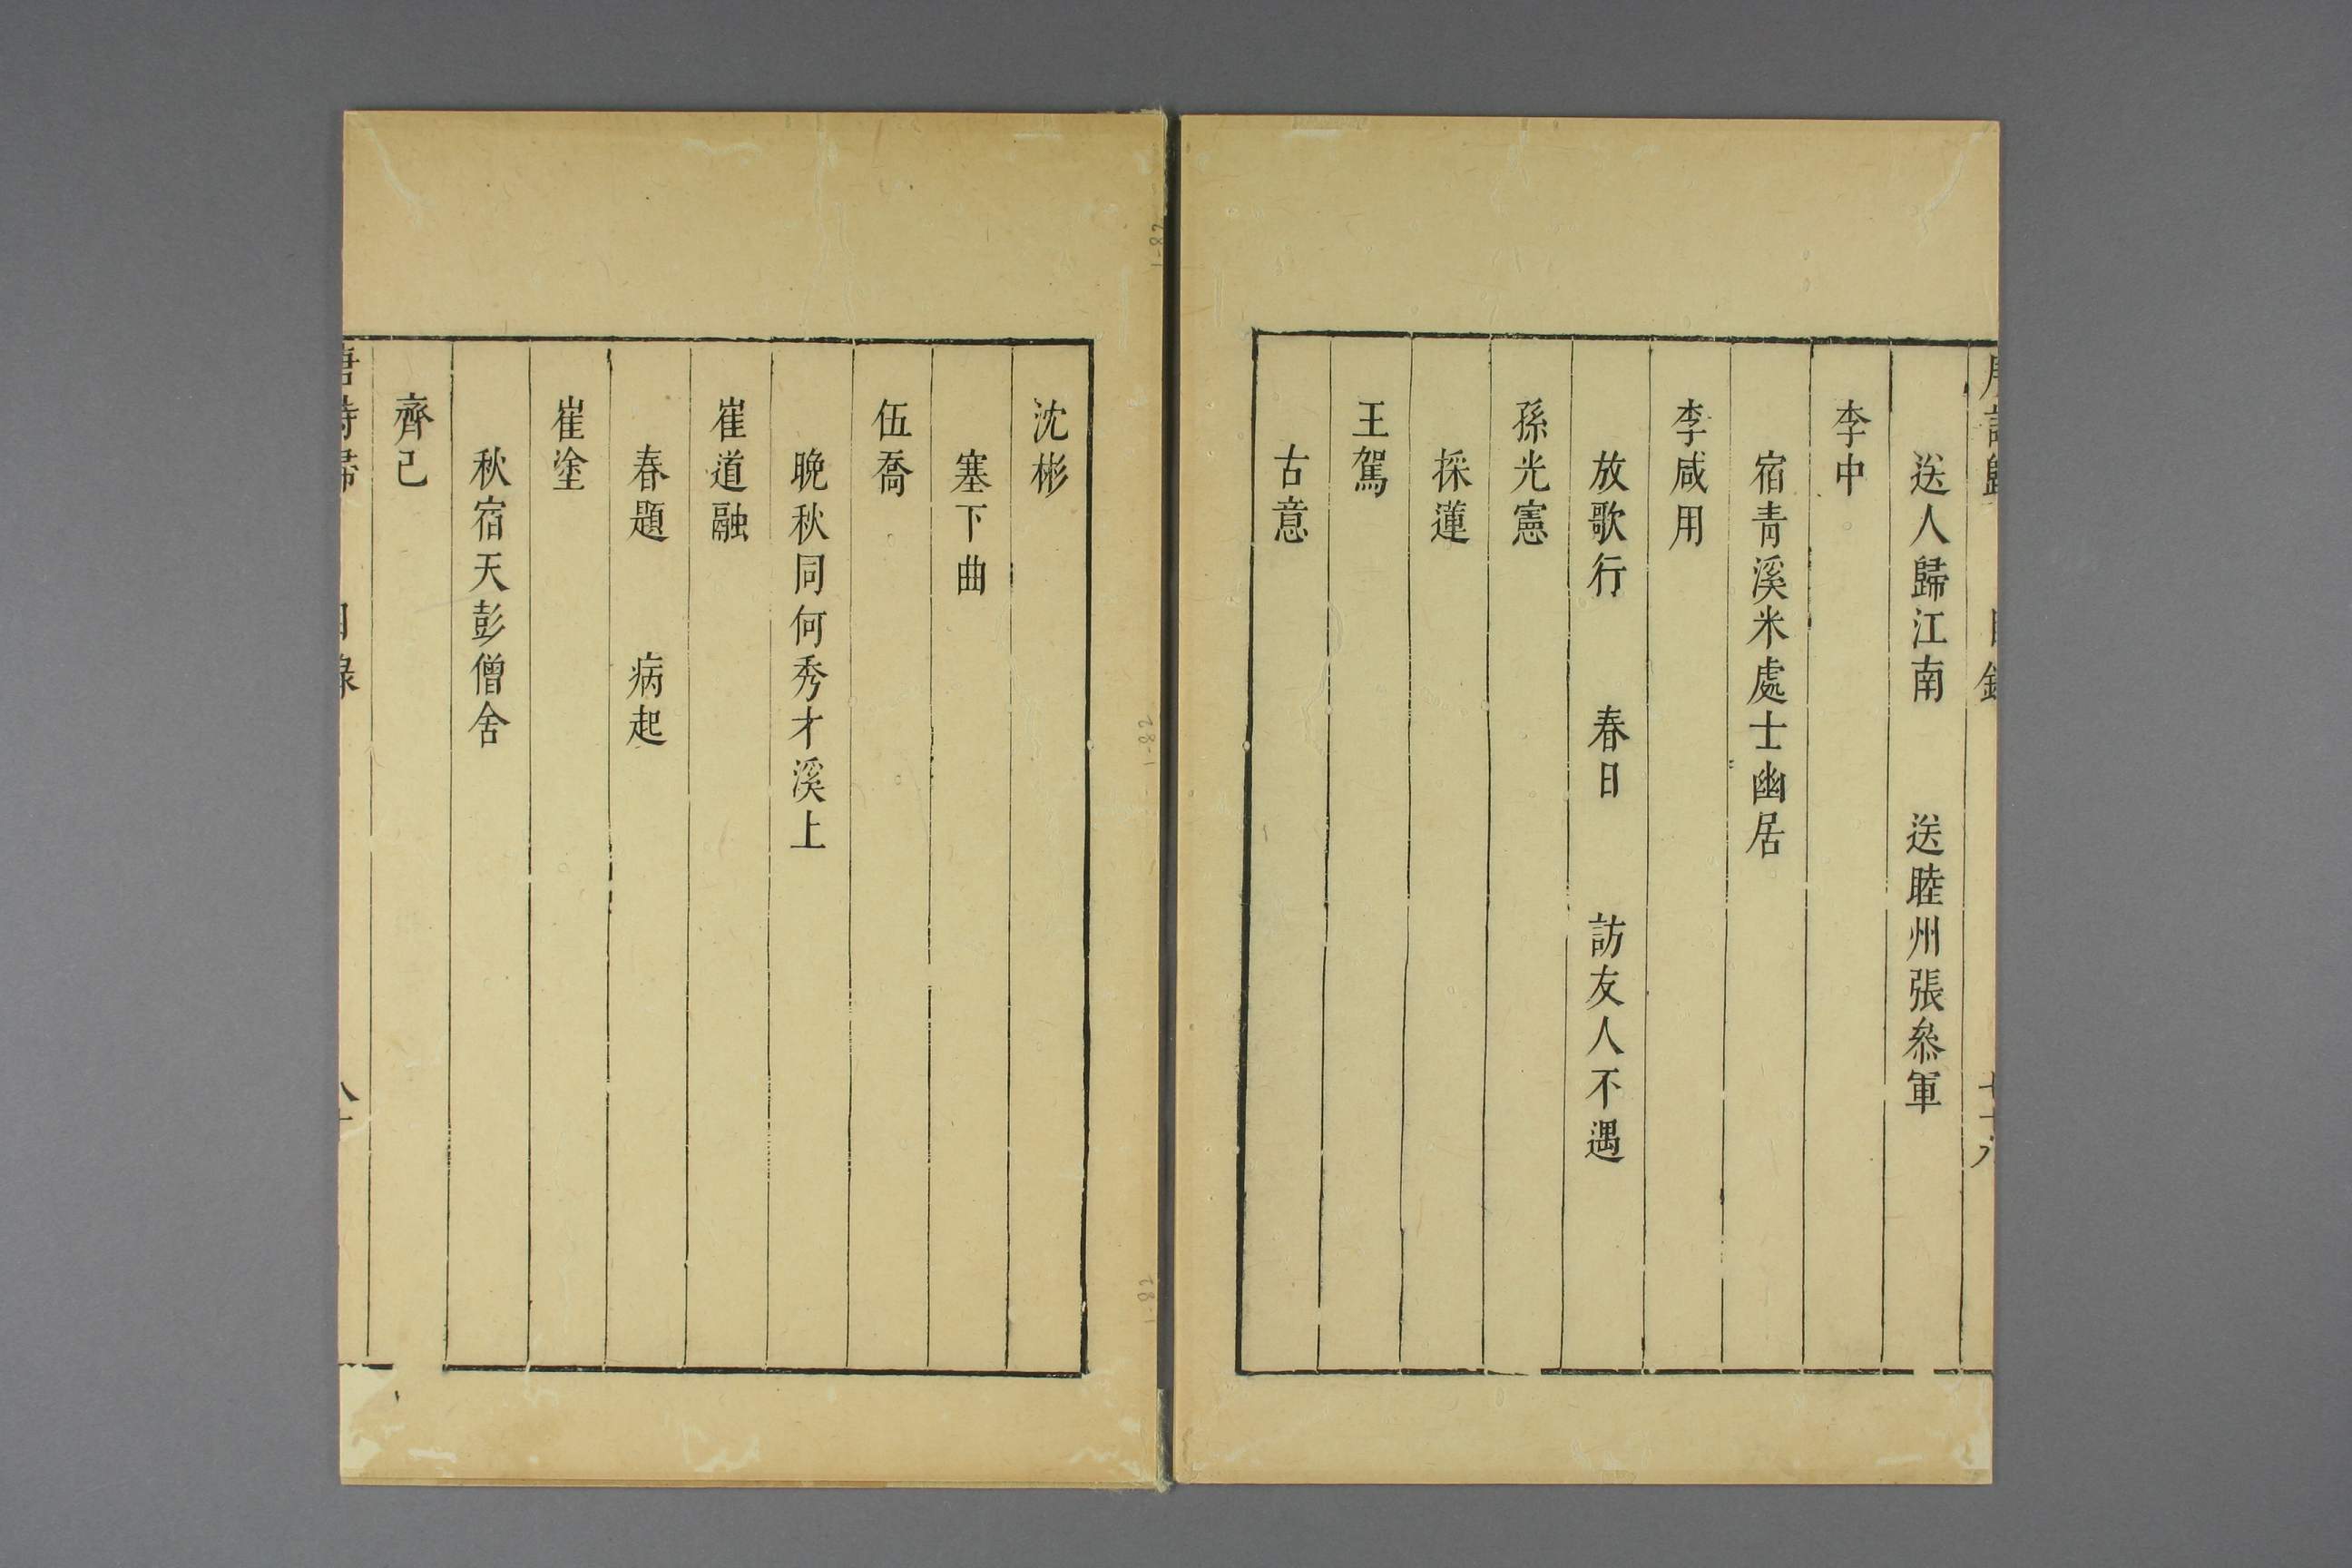 送人歸江南　送睦州張叅軍
李中
宿青溪米處士幽居
李咸用
放歌行　春日　訪友人不遇
孫光憲
採蓮
王駕
古意
沈彬
塞下曲
伍喬
晚秋同何秀才溪上
崔道融
春題　病起
崔塗
秋宿天彭僧舍
齊己